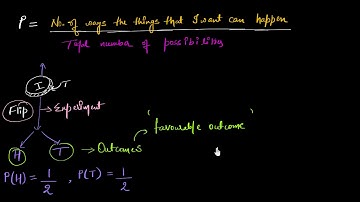 P = No. of ways the things that I want can happen
Total number of possibilities
I T
Flip → Experiment
' favourable outcome '
H T → Outcomes
P(H) = 1/2 , P(T) = 1/2